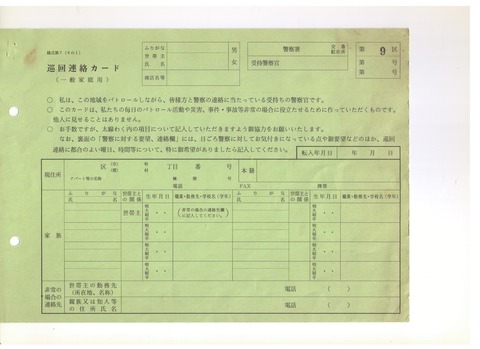 様式第7(その1)
巡回連絡カード
(一般家庭用)
ふりがな
世帯主
氏名
男
女
通話名等
警察署
交番
駐在所
受持警察官
第 9 区
第 号
○ 私は、この地域をパトロールしながら、皆様方と警察の連絡に当たっている受持ちの警察官です。
○ このカードは、私たちの毎日のパトロール活動や災害、事件・事故等非常の場合に役立たせるために作っていただくもので、
他人に見せることはありません。
○ お手数ですが、太線わく内の項目について記入していただきますよう御協力をお願いいたします。
なお、裏面の「警察に対する要望、連絡欄」には、日ごろ警察に対してお気付きになっている点や御要望などのほか、巡回
連絡に都合のよい曜日、時間等について、特に御希望がありましたら記入してください。
転入年月日 年 月 日
現住所
区
丁目 番 号
アパート等の名称
本籍
電話
FAX
携帯
ふりがな
氏名
世帯主と
の関係
生年月日
職業・勤務先・学校名(学年)
ふりがな
氏名
世帯主と
の関係
生年月日
職業・勤務先・学校名(学年)
家族
世帯主
(非常の場合の連絡先欄
に記入してください。)
明大昭平
非常の
場合の
連絡先
世帯主の勤務先
(所在地、名称)
電話 ( )
親族又は知人等
の住所氏名
電話 ( )